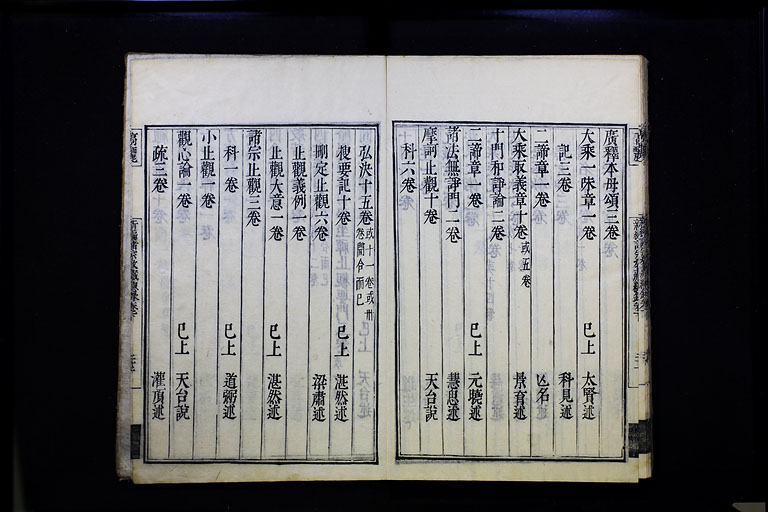 廣釋本母頌三卷
大乘一味章一卷 已上 太賢述
記三卷 科見述
二諦章一卷 亡名
大乘取義章十卷 或五卷 景育述
十門和諍論二卷
二諦章一卷 已上 元曉述
諸法無諍門二卷 慧思述
摩訶止觀十卷 天台說
科六卷
弘決十五卷 或十一卷或卅卷開合而已
搜要記十卷 已上 湛然述
刪定止觀六卷 梁肅述
止觀義例一卷
止觀大意一卷 已上 湛然述
諸宗止觀三卷
科一卷 已上 道弼述
小止觀一卷
觀心論一卷 已上 天台說
疏三卷 灌頂述
高麗
新編諸宗教藏總錄卷